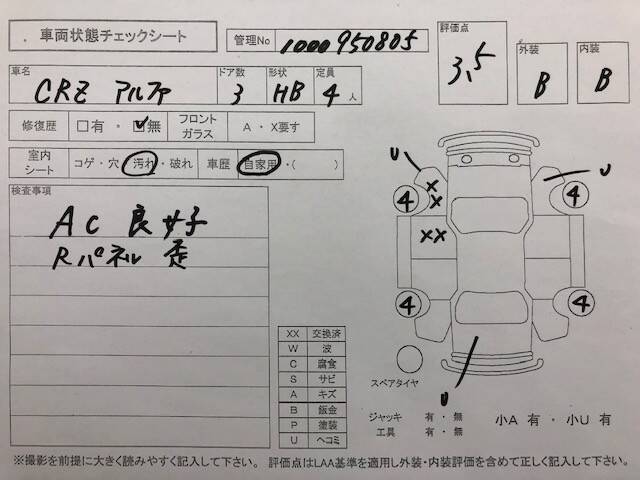 車両状態チェックシート
管理No 1000950805
評価点 3.5
外装 B
内装 B
車名 CRZ アルファ
ドア数 3
形状 HB
定員 4 人
修復歴 □有・☑無
フロントガラス A・X要す
室内シート コゲ・穴 汚れ・破れ
車歴 自家用・( )
検査事項
AC 良好
Rパネル 歪
U
U
4
XX
4
XX
4
4
U
XX 交換済
W 波
C 腐食
S サビ
A キズ
B 鈑金
P 塗装
U ヘコミ
スペアタイヤ
ジャッキ 有・無
工具 有・無
小A 有・小U 有
※撮影を前提に大きく読みやすく記入して下さい。 評価点はLAA基準を適用し外装・内装評価を含めて正しく記入して下さい。